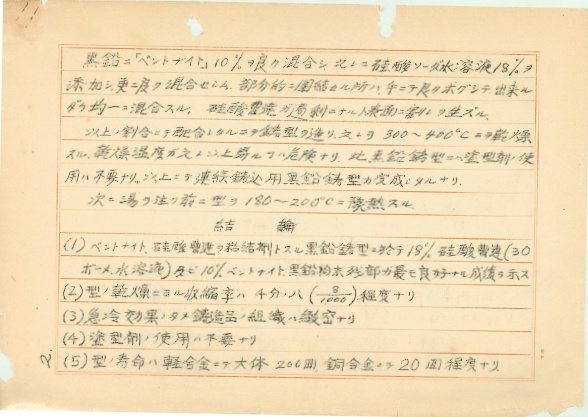 黒鉛ニ「ベントナイト」10%ヲ良ク混合シ、之レニ硅酸ソーダ水溶液18%ヲ
添加シ更ニ良ク混合セシム. 部分的ニ固結セル所ハ手ニテ良クホグシテ出来ル
ダケ均一ニ混合スル. 硅酸曹達ガ過剰ニナルト表面ニ ヲ生ズル.
以上ノ割合ニテ配合シタルニテ鋳型ヲ造リ之レヲ 300～400°Cニテ乾燥
スル. 乾燥温度ガ之レ以上昇ルコトハ危険ナリ. 此黒鉛鋳型ニハ塗型剤ノ使
用ハ不要ナリ. 以上ニテ連続鋳込用黒鉛鋳型ガ完成シタルナリ.
次ニ湯ヲ注リ前ニ型ヲ 180～200°Cニ豫熱スル.
結 論
(1) ベントナイト、硅酸曹達ヲ粘結剤トスル黒鉛鋳型ニ於テ18% 硅酸曹達(30
ボーメ、水溶液)及ビ10%ベントナイト、黒鉛粉末残部ガ最モ良好ナル成績ヲ示ス
(2) 型ノ乾燥ニヨル収縮率ハ 千分ノ八 (8/1000) 程度ナリ
(3) 急冷効果ノタメ鋳造品ノ組織ハ緻密ナリ
(4) 塗型剤ノ使用ハ不要ナリ
(5) 型ノ寿命ハ軽合金ニテ大体 200回 銅合金ニテ 20回程度ナリ
2.